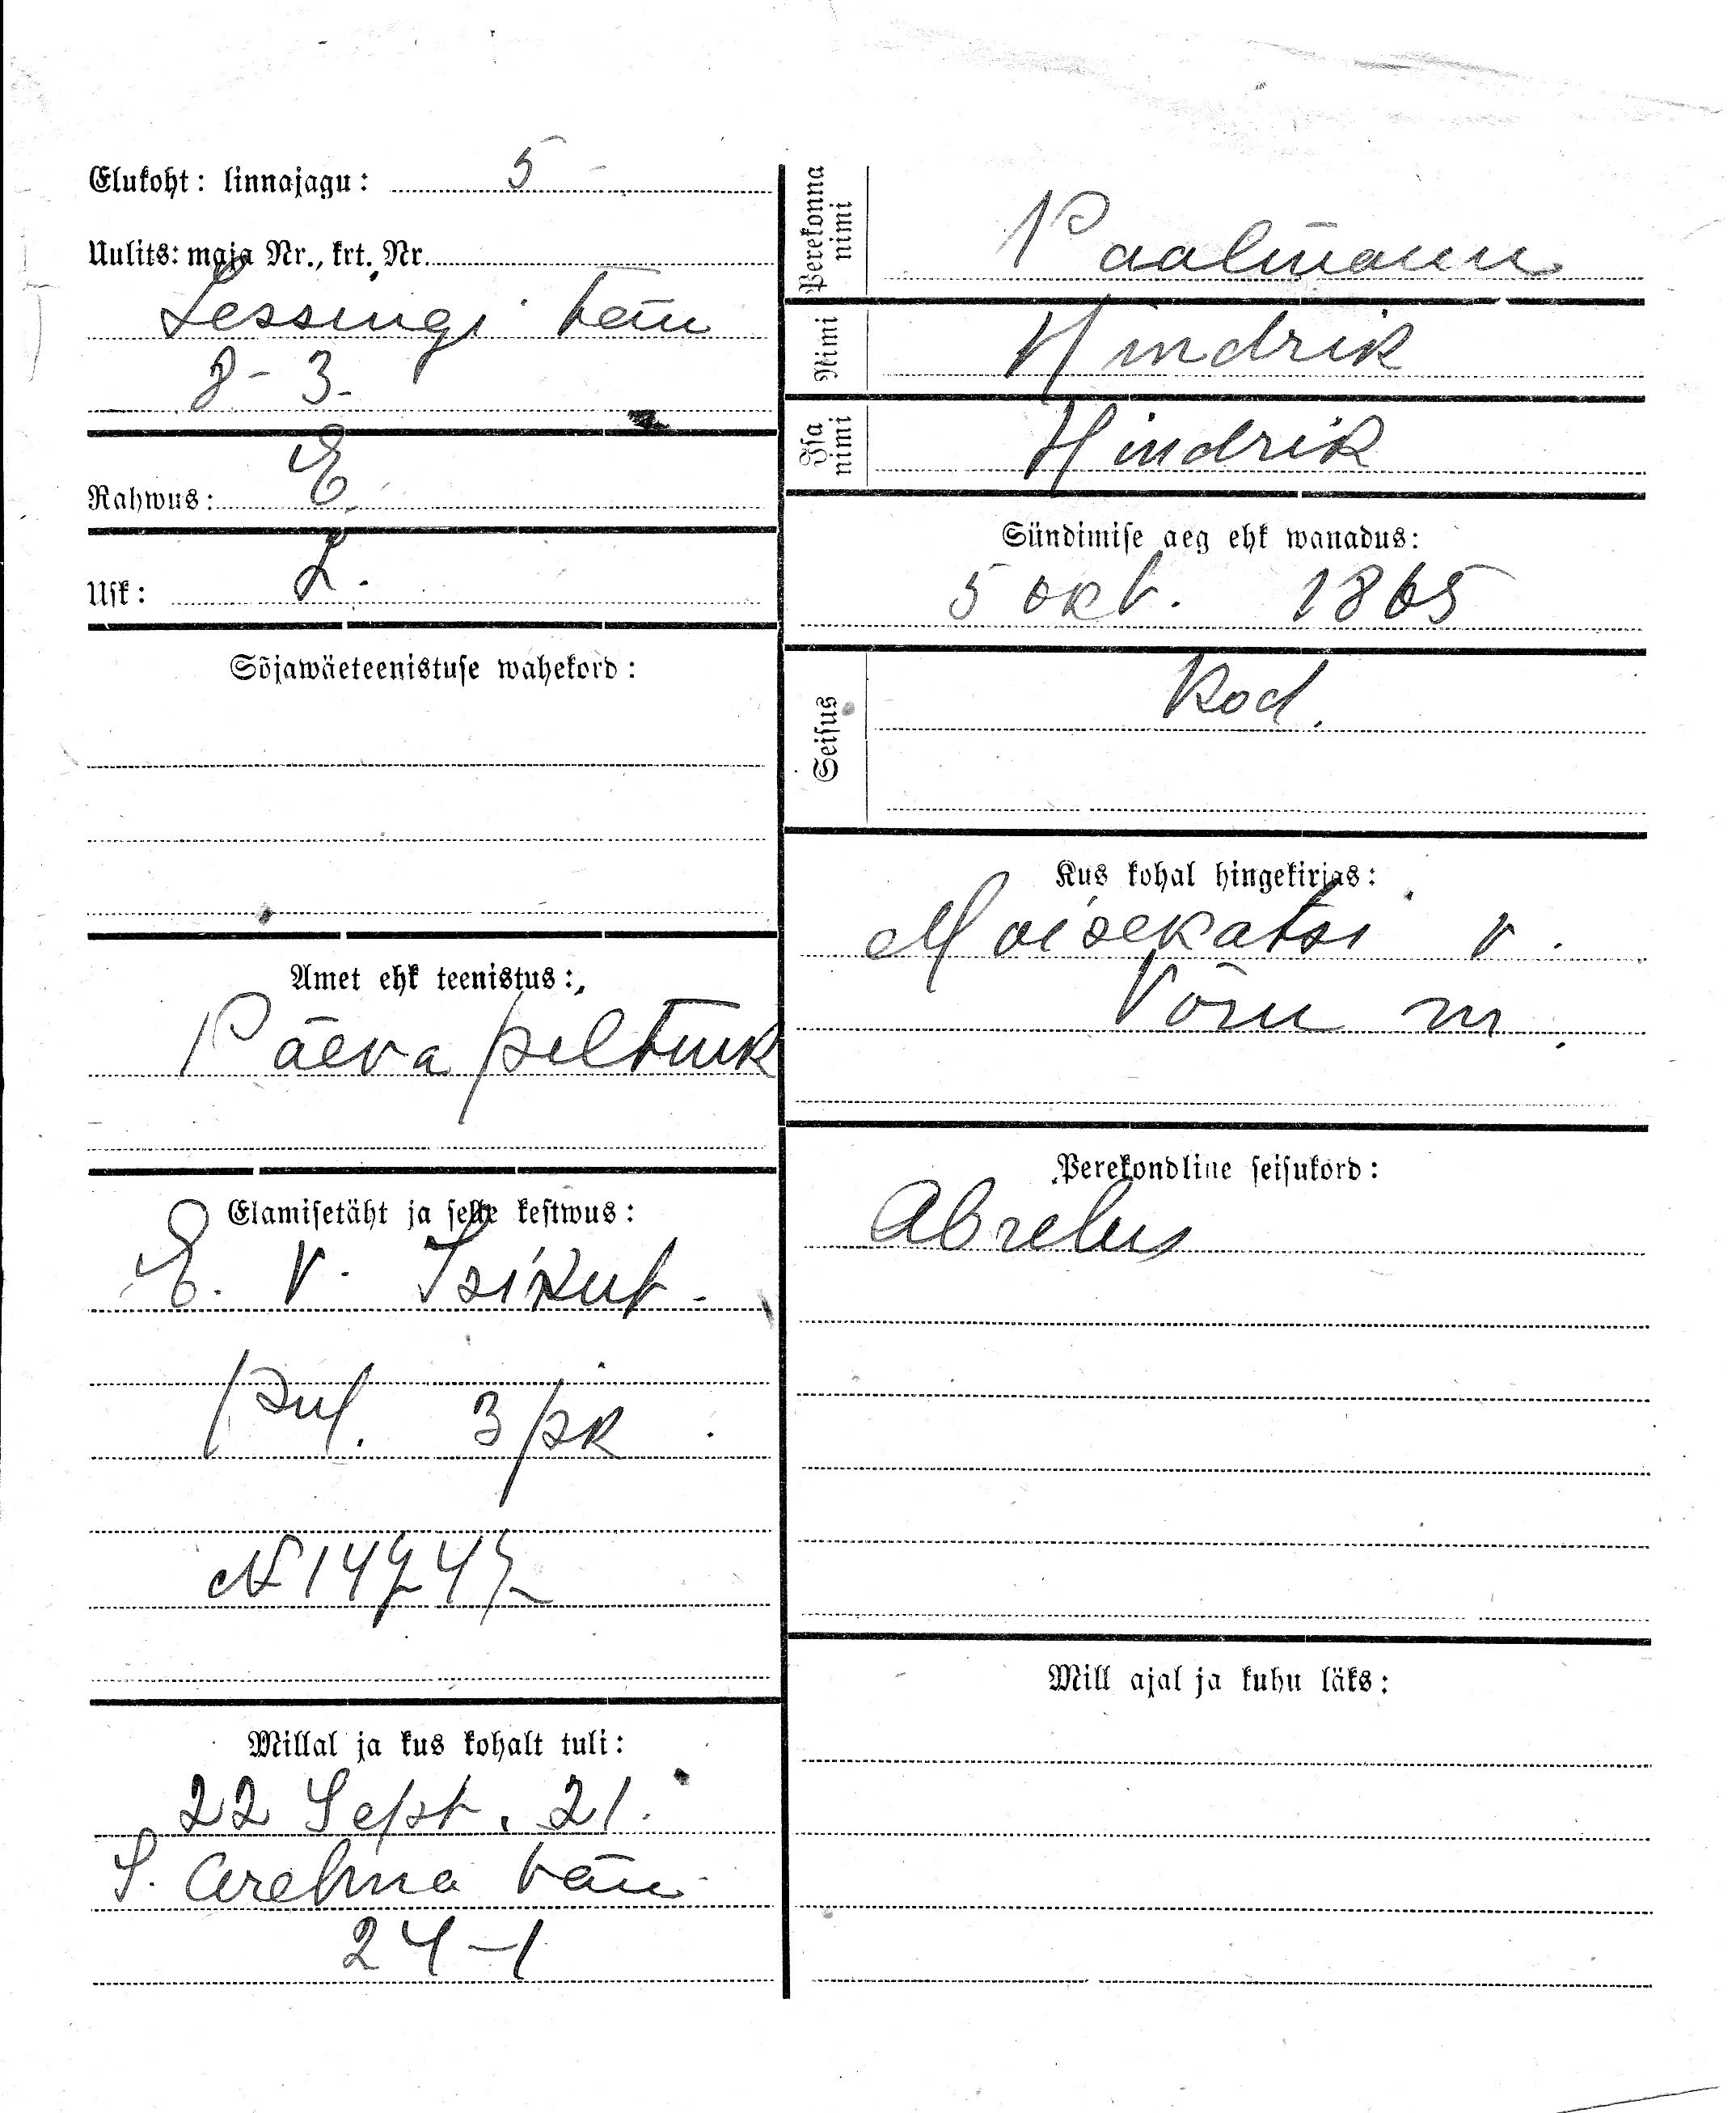 Elukoht: linnajagu: 5
Uulits: maja Nr., krt. Nr.
Lessingi tän
8-3.
Rahwus: E.
Usk: L.
Sõjawäeteenistuse wahekord:
Amet ehk teenistus:
Päeva piltnik
Elamisetäht ja selle kestwus:
E. V. Isikut.
3 pk.
Millal ja kus kohalt tuli:
22 Sept. 21.
tän
24-1
Perekonna nimi
Paalmann
Nimi
Hindrik
Isa nimi
Hindrik
Sündimise aeg ehk wanadus:
5 okt. 1865
Seisus
Kod.
Kus kohal hingekirjas:
Moisekatsi v.
Võru m.
Perekondline seisukord:
Abielus
Mill ajal ja kuhu läks: